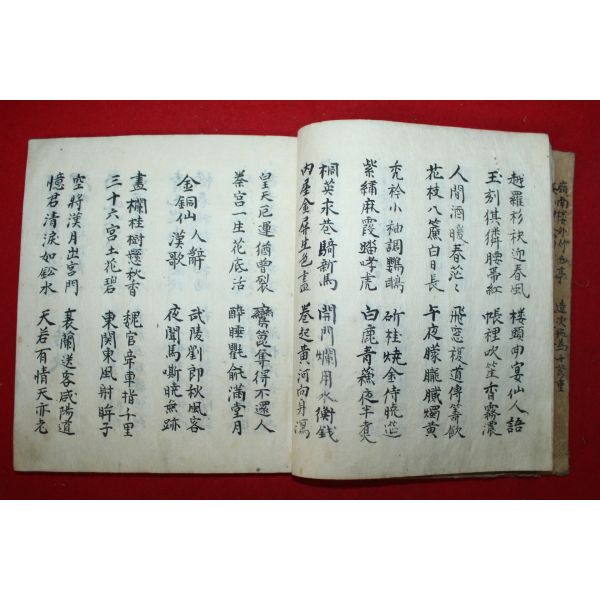 越羅衫袂迎春風
玉刻麒麟腰帶紅
樓頭曲宴仙人語
帳裡吹笙香霧濃
人間酒暖春茫〻
花枝入簾白日長
飛窓複道傳籌飲
午夜朦朧膩燭黃
禿衿小袖調鸚鵡
紫繡麻霞踏哮虎
斫桂燒金待曉筵
白鹿青蘓夜半煮
桐英永巷騎新馬
內屋金屏生色畫
開門爛用水衡錢
卷起黃河向身瀉
皇天厄運猶曾裂
秦宮一生花底活
鸞篦奪得不還人
醉睡氍毹滿堂月
金銅仙人辭漢歌
武陵劉郎秋風客
夜聞馬嘶曉無跡
畫欄桂樹懸秋香
三十六宮土花碧
魏官牽車指千里
東關東風射眸子
空將漢月出宮門
憶君清淚如鉛水
衰蘭送客咸陽道
天若有情天亦老